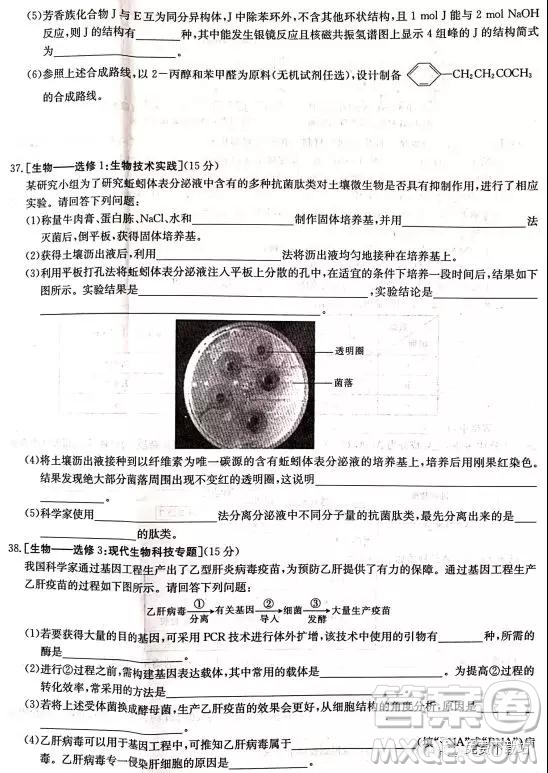 (5)芳香族化合物J与E互为同分异构体,J中除苯环外,不含其他环状结构,且1 mol J能与2 mol NaOH
反应,则J的结构有________种,其中能发生银镜反应且核磁共振氢谱图上显示4组峰的J的结构简式
为________。
(6)参照上述合成路线,以2-丙醇和苯甲醛为原料(无机试剂任选),设计制备 —CH₂CH₂COCH₃
的合成路线。
37.[生物——选修1:生物技术实践](15分)
某研究小组为了研究蚯蚓体表分泌液中含有的多种抗菌肽类对土壤微生物是否具有抑制作用,进行了相应
实验。请回答下列问题:
(1)称量牛肉膏、蛋白胨、NaCl、水和________制作固体培养基,并用________法
灭菌后,倒平板,获得固体培养基。
(2)获得土壤沥出液后,利用________法将沥出液均匀地接种在平板上。
(3)利用平板打孔法将蚯蚓体表分泌液注入平板上分散的孔中,在适宜的条件下培养一段时间后,结果如下
图所示。实验结果是________,实验结论是________
________。
透明圈
菌落
(4)将土壤沥出液接种到以纤维素为唯一碳源的含有蚯蚓体表分泌液的培养基上,培养后用刚果红染色。
结果发现绝大部分菌落周围出现不变红的透明圈,这说明________
________。
(5)科学家使用________法分离分泌液中不同分子量的抗菌肽类,最先分离出来的是________
________的肽类。
38.[生物——选修3:现代生物科技专题](15分)
我国科学家通过基因工程生产出了乙型肝炎病毒疫苗,为预防乙肝提供了有力的保障。通过基因工程生产
乙肝疫苗的过程如下图所示。请回答下列问题:
乙肝病毒 ①分离→ 有关基因 ②导入→ 细菌 ③发酵→ 大量生产疫苗
(1)若要获得大量的目的基因,可采用PCR技术进行体外扩增,该技术中使用的引物有________种,所需的
酶是________。
(2)进行②过程之前,需构建基因表达载体,其中常用的载体是________。为提高②过程的
转化效率,常采用的方法是________。
(3)若将上述受体菌换成酵母菌,生产乙肝疫苗的效果会更好,从细胞结构的角度分析,原因是________
________。
(4)乙肝病毒可以用于基因工程中,可推知乙肝病毒属于________(填"DNA"或"RNA")病
毒,乙肝病毒专一侵染肝细胞的原因是________
答案圈